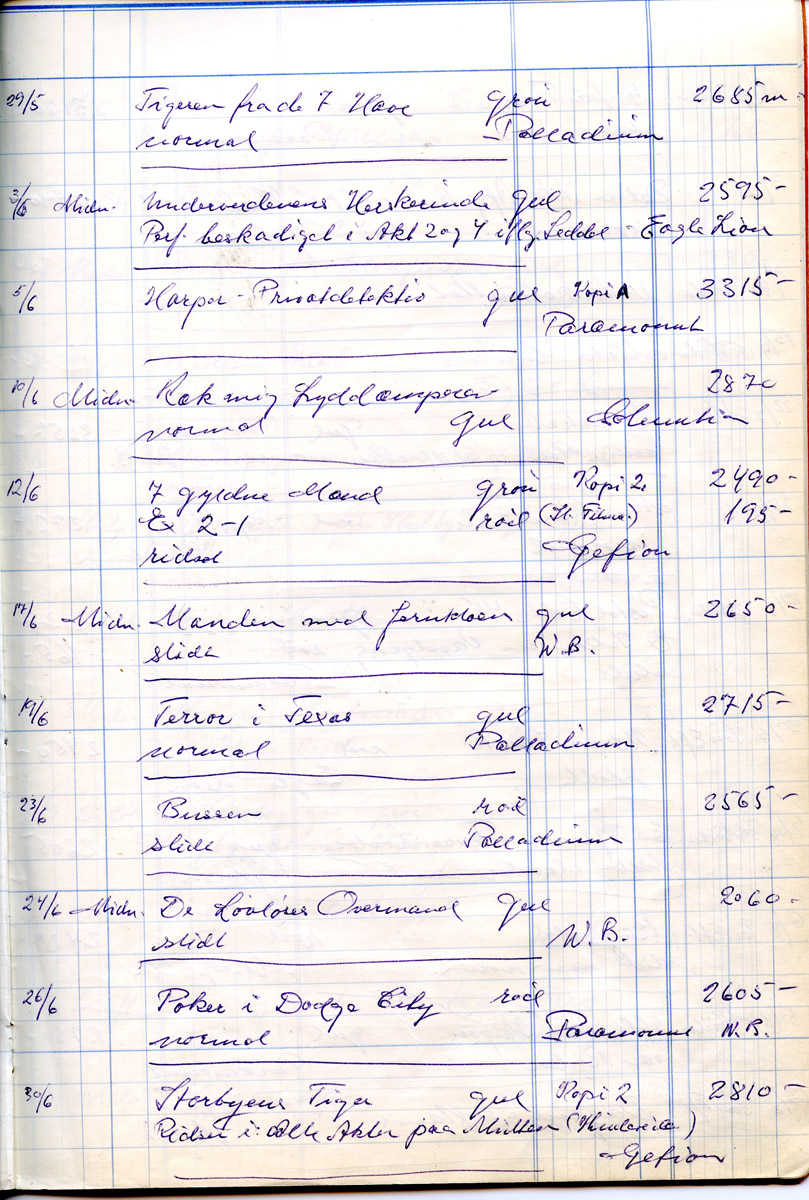 29/5 Tigeren fra de 7 Have grön 2685 m
normal Palladium
3/6 Midn. Underverdenens Herskerinde gul 2595 -
Perf. beskadiget i Akt 2 og 4 i Eagle Lion
5/6 Harper - Privatdetektiv gul Kopi A 3315 -
Paramount
10/6 Midn. Ræk mig Lyddæmperen 2870
normal gul Columbia
12/6 7 gyldne Mænd grön Kopi 2. 2490 -
Ex 2-1 röd 195 -
ridset Gefion
17/6 Midn. Manden med Jernkloen gul 2650 -
slidt W.B.
19/6 Terror i Texas gul 2715 -
normal Palladium
23/6 Bussen röd 2565 -
slidt Palladium
24/6 Midn. De Lovløses Overmand gul 2060 -
slidt W.B.
26/6 Poker i Dodge City röd 2605 -
normal Paramount W.B.
30/6 Storbyens Tiger gul Kopi 2 2810 -
Ridser i alle Akter paa Midten
Gefion